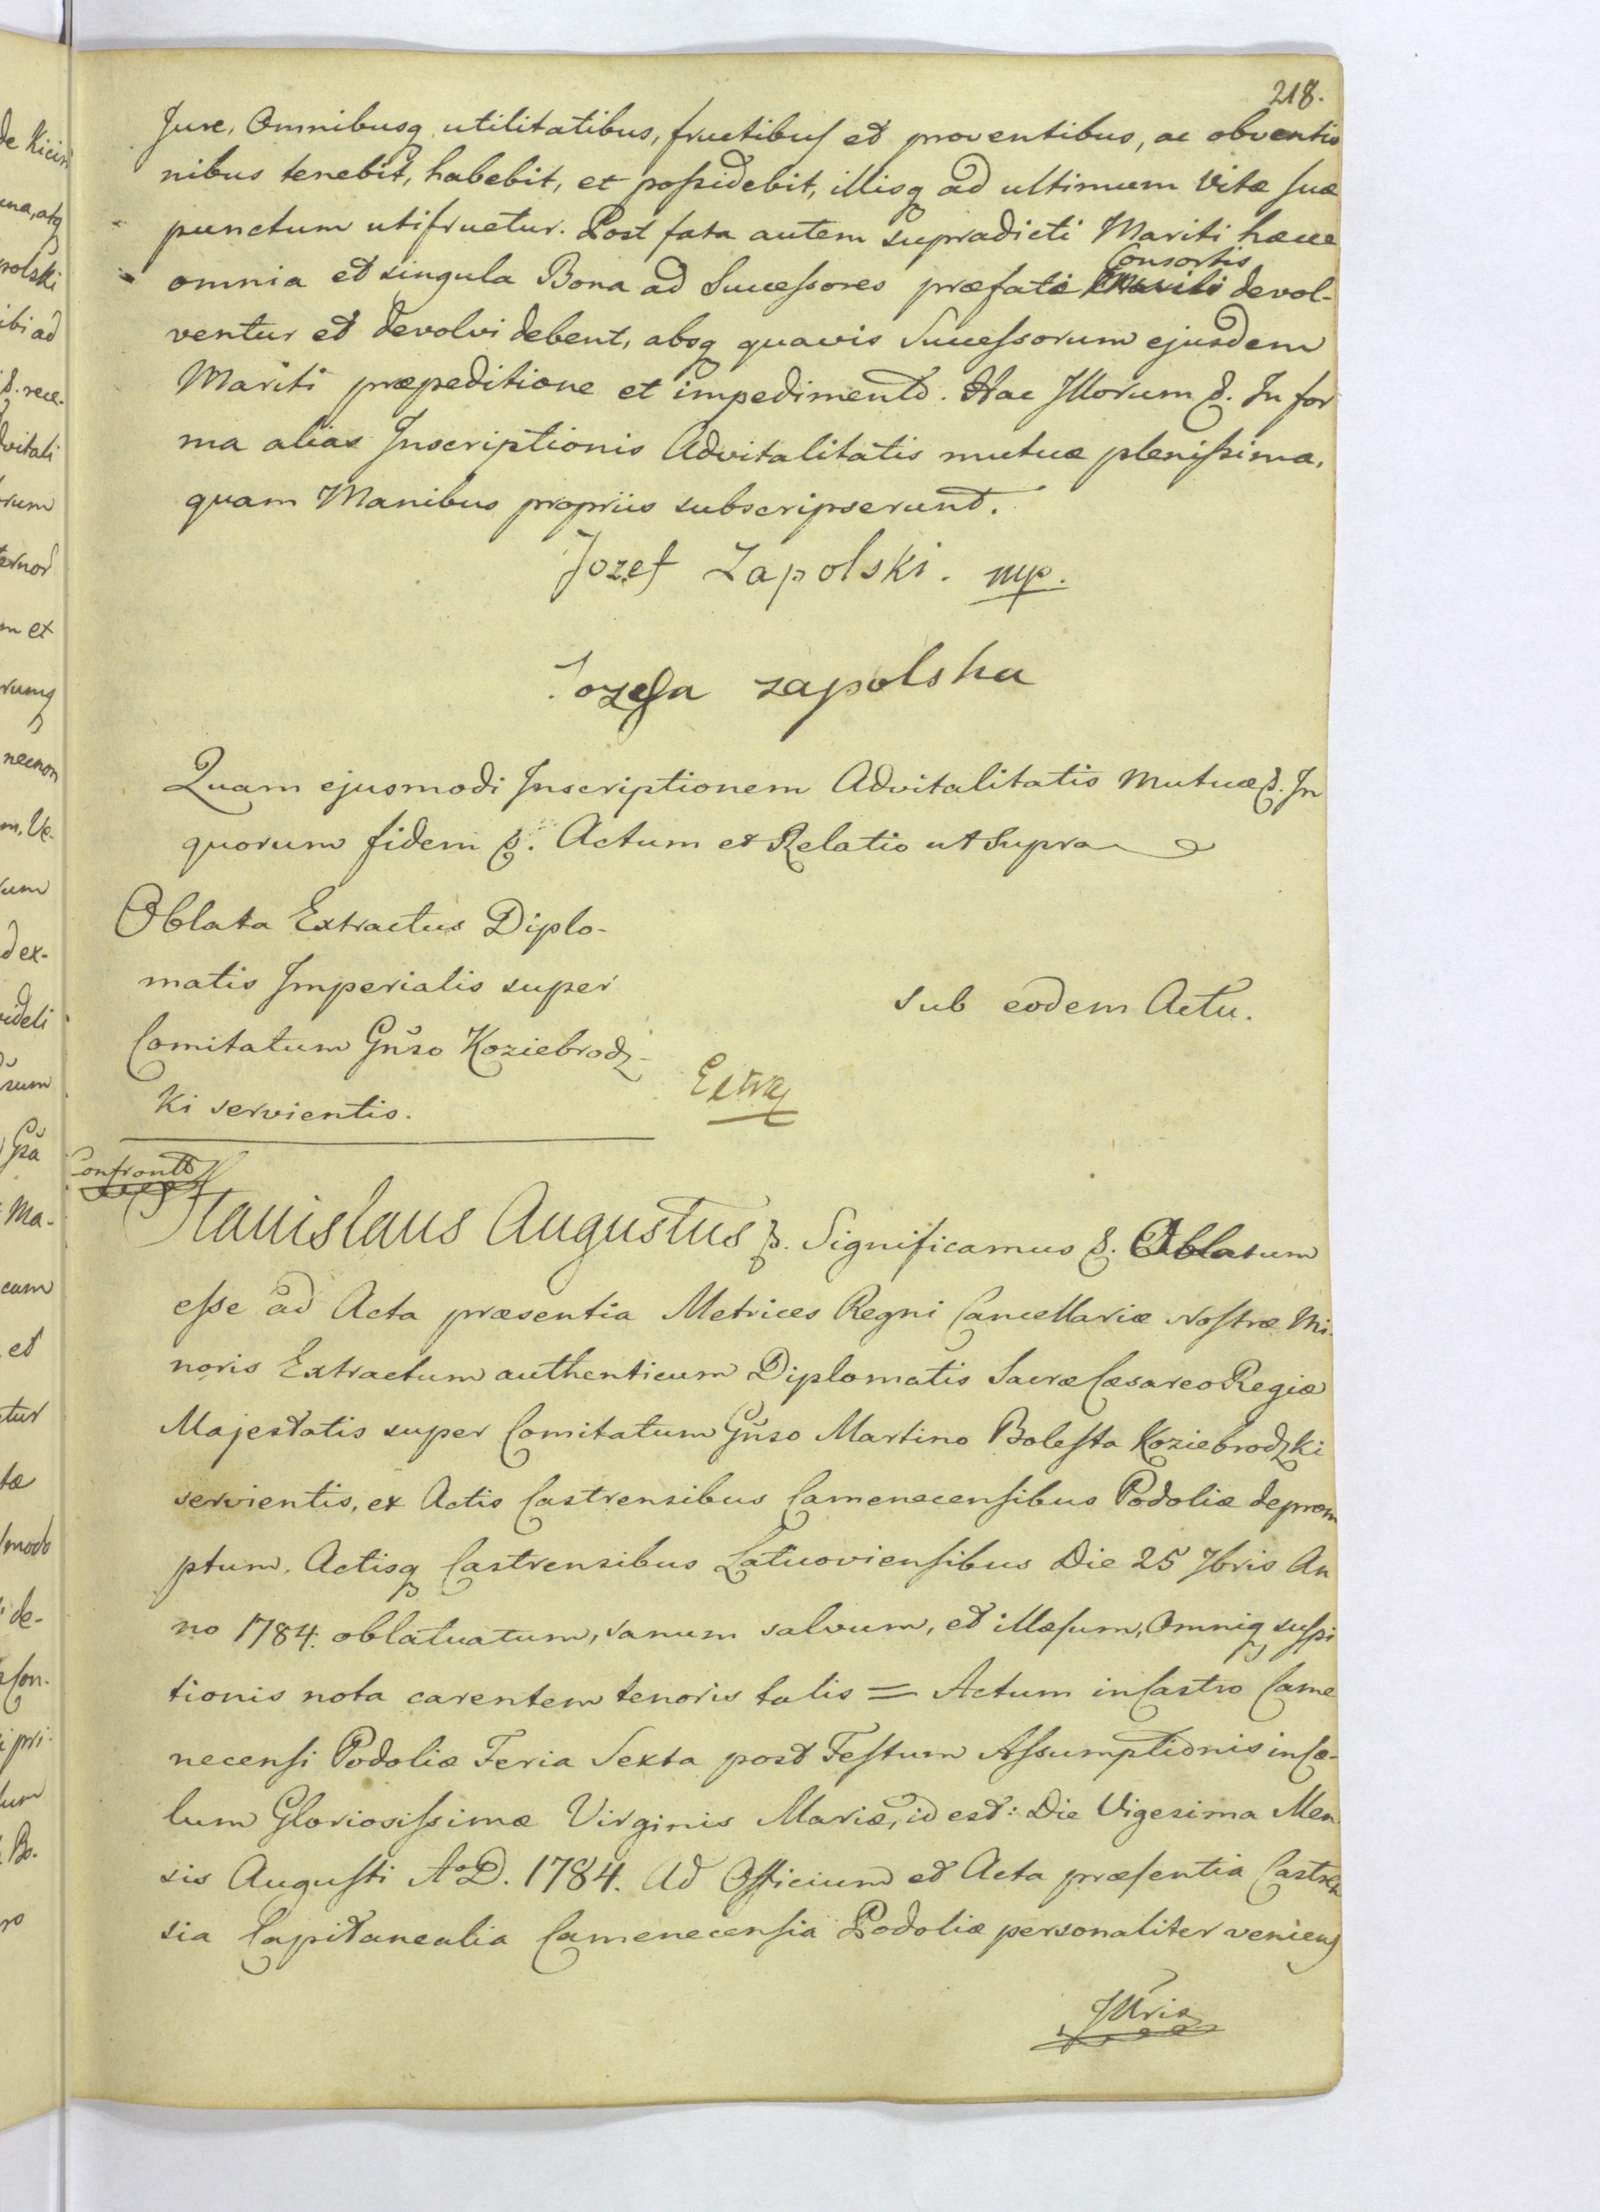 218.
Jure, Omnibusq utilitatibus, fructibus et proventibus, ac obventio
nibus tenebit, habebit, et possidebit, illisq ad ultimum Vitæ suæ
punctum utifruetur. Post fata autem supradicti Mariti hæcce
Consortis
omnia et singula Bona ad Successores præfati Mariti devol-
ventur et devolvi debent, absq quavis Successorum ejusdem
Mariti præpeditione et impedimento. Hac Illorum &. In for
ma alias Inscriptionis Advitalitatis mutuæ plenissima,
quam Manibus propriis subscripserunt.
Jozef Zapolski. mp.
Jozefa zapolska
Quam ejusmodi Inscriptionem Advitalitatis Mutuæ &. In
quorum fidem &. Actum et Relatio ut Supra
Oblata Extractus Diplo-
matis Imperialis super
Comitatum Gñso Koziebrodz-
ki servientis.
Sub eodem Actu.
Extra
Stanislaus Augustus &. Significamus &. Oblatum
esse ad Acta præsentia Metrices Regni Cancellariæ Nostræ Mi-
noris Extractum authenticum Diplomatis Sacræ Cæsareo Regiæ
Majestatis super Comitatum Gñso Martino Bolesta Koziebrodzki
servientis, ex Actis Castrensibus Camenecensibus Podoliæ deprom
ptum, Actisq Castrensibus Latuoviensibus Die 25 7bris An
no 1784. oblatuatum, sanum salvum, et illæsum, Omniq suspi
tionis nota carentem tenoris talis = Actum in Castro Came
necensi Podoliæ Feria Sexta post Festum Assumptionis in Cæ-
lum Gloriosissimæ Virginis Mariæ, id est: Die Vigesima Men
sis Augusti A°D. 1784. Ad Officium et Acta præsentia Castren
sia Capitanealia Camenecensia Podoliæ personaliter veniens